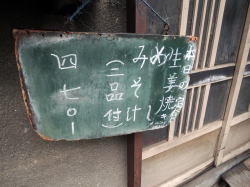 本日の定食
生姜焼き
めし
みそ汁
(二品付)
四七〇-